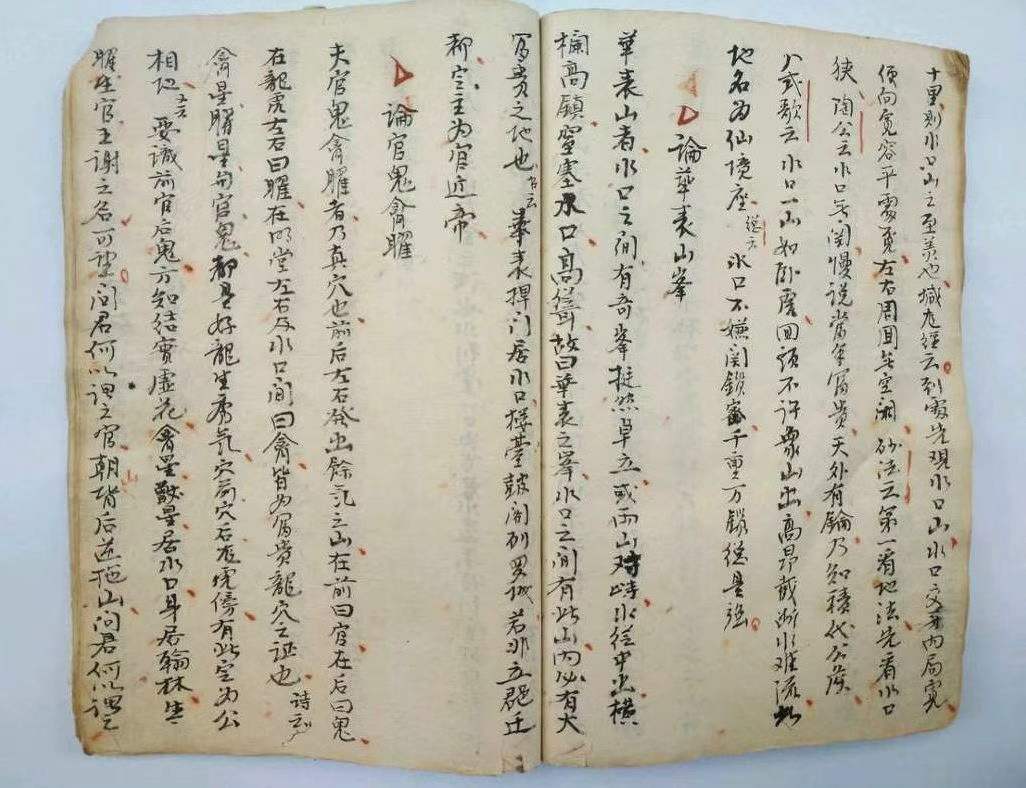 十里则水口山之至美也 撼龙经云 到处先观水口山 水口交牙内局宽
便向宽容平处觅 左右周围无空阙 砂法云 第一看地法先看水口
狭 陶公云 水口无关慢说当年富贵 天外有钥乃知积代公侯
入式歌云 水口一山如卧虎 回头不许众山出 高昂截断水难流 此
地名为仙境座 总云 水口不嫌关锁密 千重万锁总是强
论华表山峯
华表山者 水口之间有奇峯挺然卓立 或两山对峙水从中出 横
栏高镇窒塞水口高耸 故曰华表之峯 水口之间有此山内必有大
富贵之地也 古云 华表捍门居水口 楼台鼓阁列罗城 若非立郡迁
都 定主为官近帝
论官鬼禽曜
夫官鬼禽曜者 乃真穴也 前后左右发出馀气之山 在前曰官 在后曰鬼
在龙虎左右曰曜 在明堂左右及水口间曰禽 皆为富贵龙穴之证也 诗云
禽星曜星与官鬼 都是好龙生秀气 穴前穴后龙虎傍 有此定为公
相地 又云 要识前官后鬼方知结实虚花 禽星兽星居水口身居翰林 生
曜生官王谢之名可望 问君何以谓之官 朝背后逆拖山 问君何以谓之